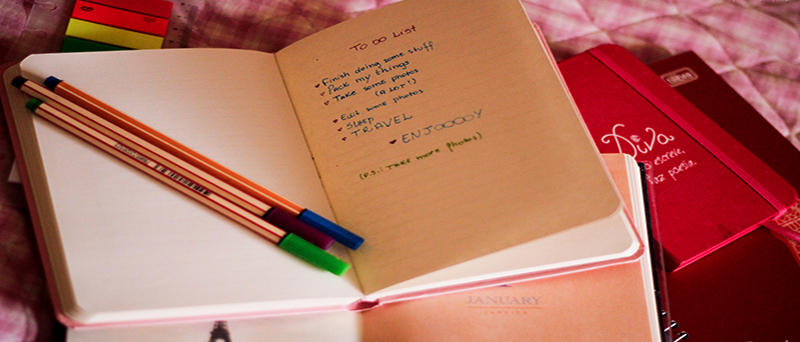 To do List
Finish doing some stuff
Pack my things
Take some photos
(A LOT!)
Edit some photos
SLEEP
TRAVEL
ENJOOOOY
(P.S.: Take more photos)
Diva
escreve,
faz poesia.
JANUARY